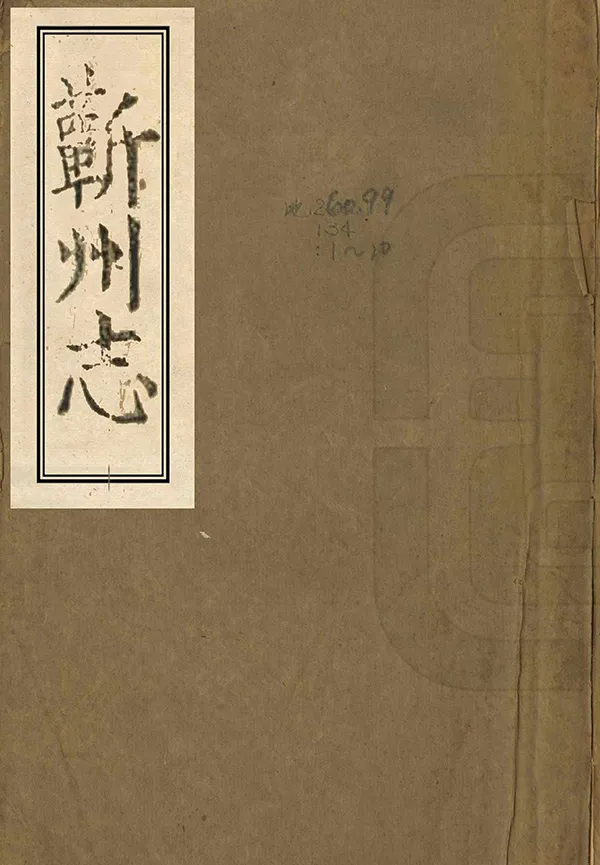 蘄州志
地260.99
134
:1~10